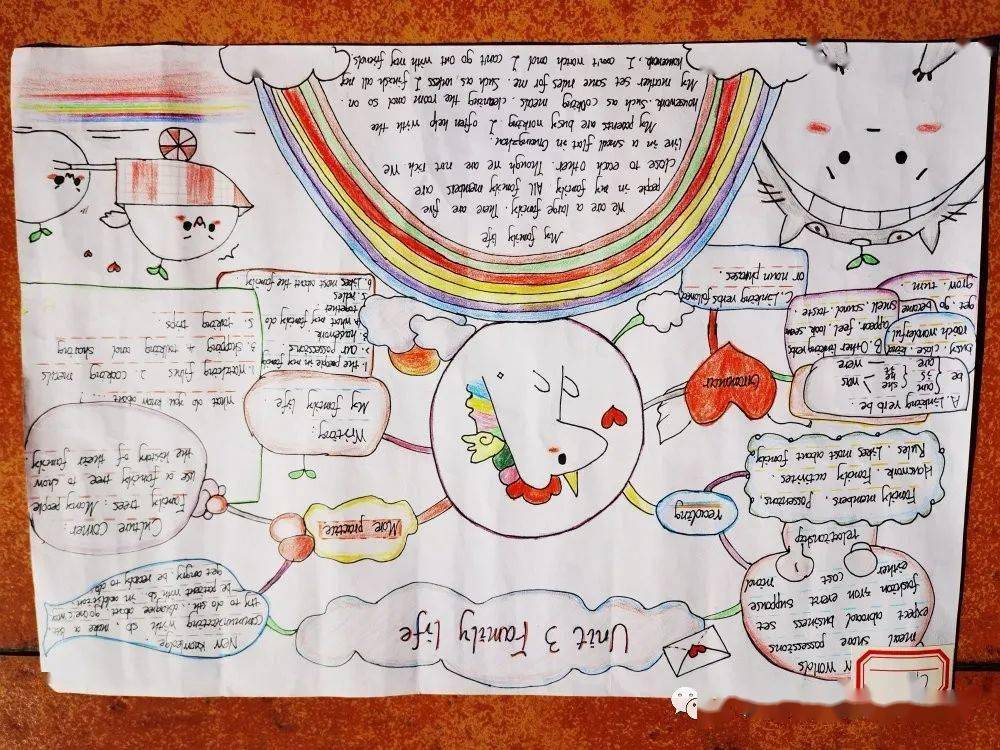 Unit 3 Family life
meal share possessions
expect abroad business set
fashion iron event support
either cost mind
relationship
reading
Family members. Possessions,
Housework. Family activities.
Rules. Likes most about family
Grammar
A. Linking verb be.
be
am
is
are
she
he
was
were
B. Other linking verbs
appear feel look seem
smell sound taste
get go become
grow turn.
C. Linking verbs followed
or noun phrases.
New knowledge.
communicating with sb, make a
try to do sth. disagree about
be patient with sb in addition.
get angry be ready to do
More practice
Culture corner:
Family trees: Many people
use a family tree to show
the history of their family
What do you know about...?
1. Watching films 2. cooking meals
3. shopping 4. talking and sharing
5. taking trips
Writing:
My family life.
1. the people in my family
2. our possessions
3. housework
4. what my family do
together
5. rules
6. Likes most about the family
My family life
We are a large family. There are five
people in my family. All family members are
close to each other. Though we are not rich. We
live in a small flat in Guangzhou.
My parents are busy working. I often help with the
housework. such as cooking meals. cleaning the room and so on.
My mother set some rules for me. Such as, unless I finish all my
homework, I can't watch and I can't go out with my friends.